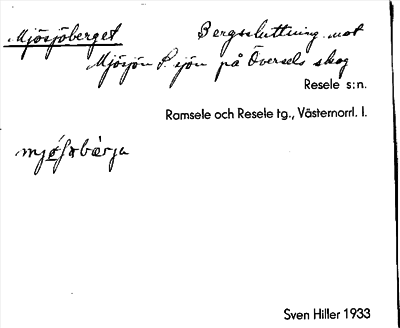 Mjösjöberget Bergssluttning mot
Mjösjön S. sjön på Översels skog
Resele s:n.
Ramsele och Resele tg., Västernorrl. l.
Sven Hiller 1933